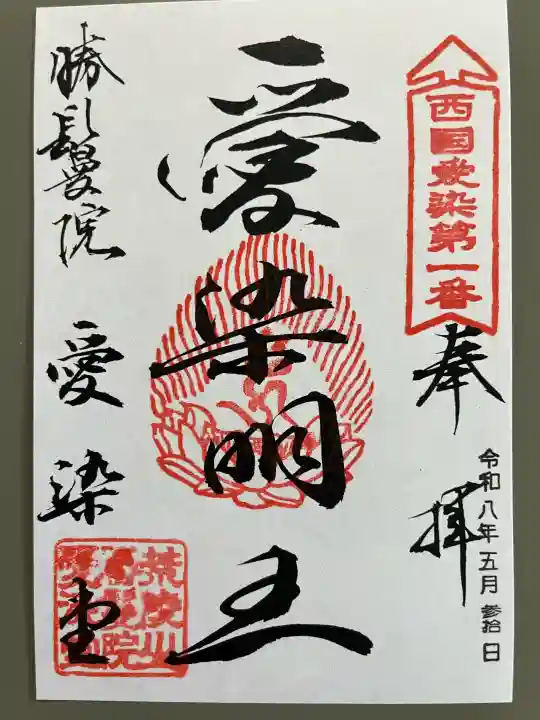 西国愛染第一番
奉拝
令和八年五月参拾日
愛染明王
勝鬘院 愛染堂